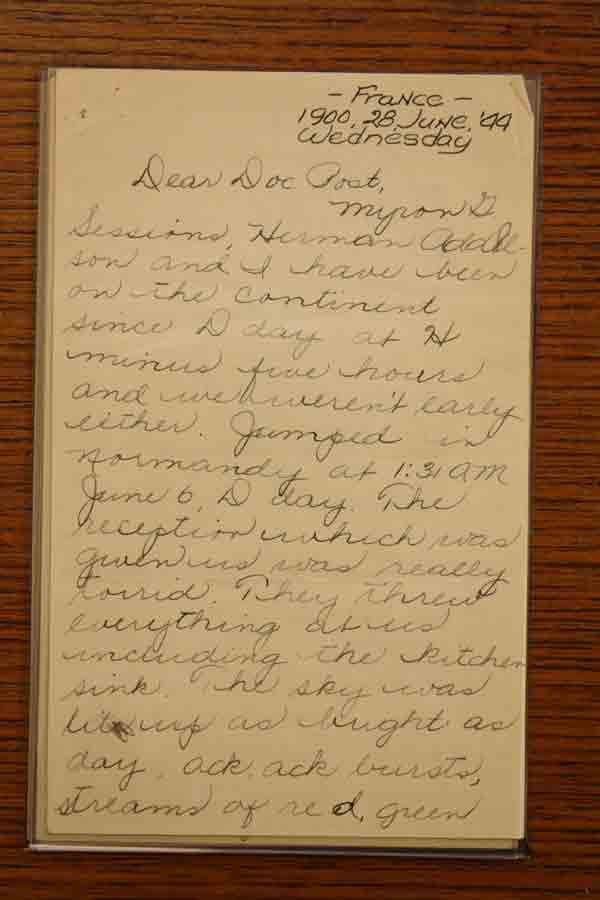 - France -
1900, 28, June, '44
Wednesday
Dear Doc Post,
Myron G
Sessions, Herman Addle-
son and I have been
on the continent
since D day at H
minus five hours
and we weren't early
either. Jumped in
Normandy at 1:31 AM
June 6, D day. The
reception which was
given us was really
torrid. They threw
everything at us
including the kitchen
sink. The sky was
lit up as bright as
day, ack ack bursts,
streams of red, green